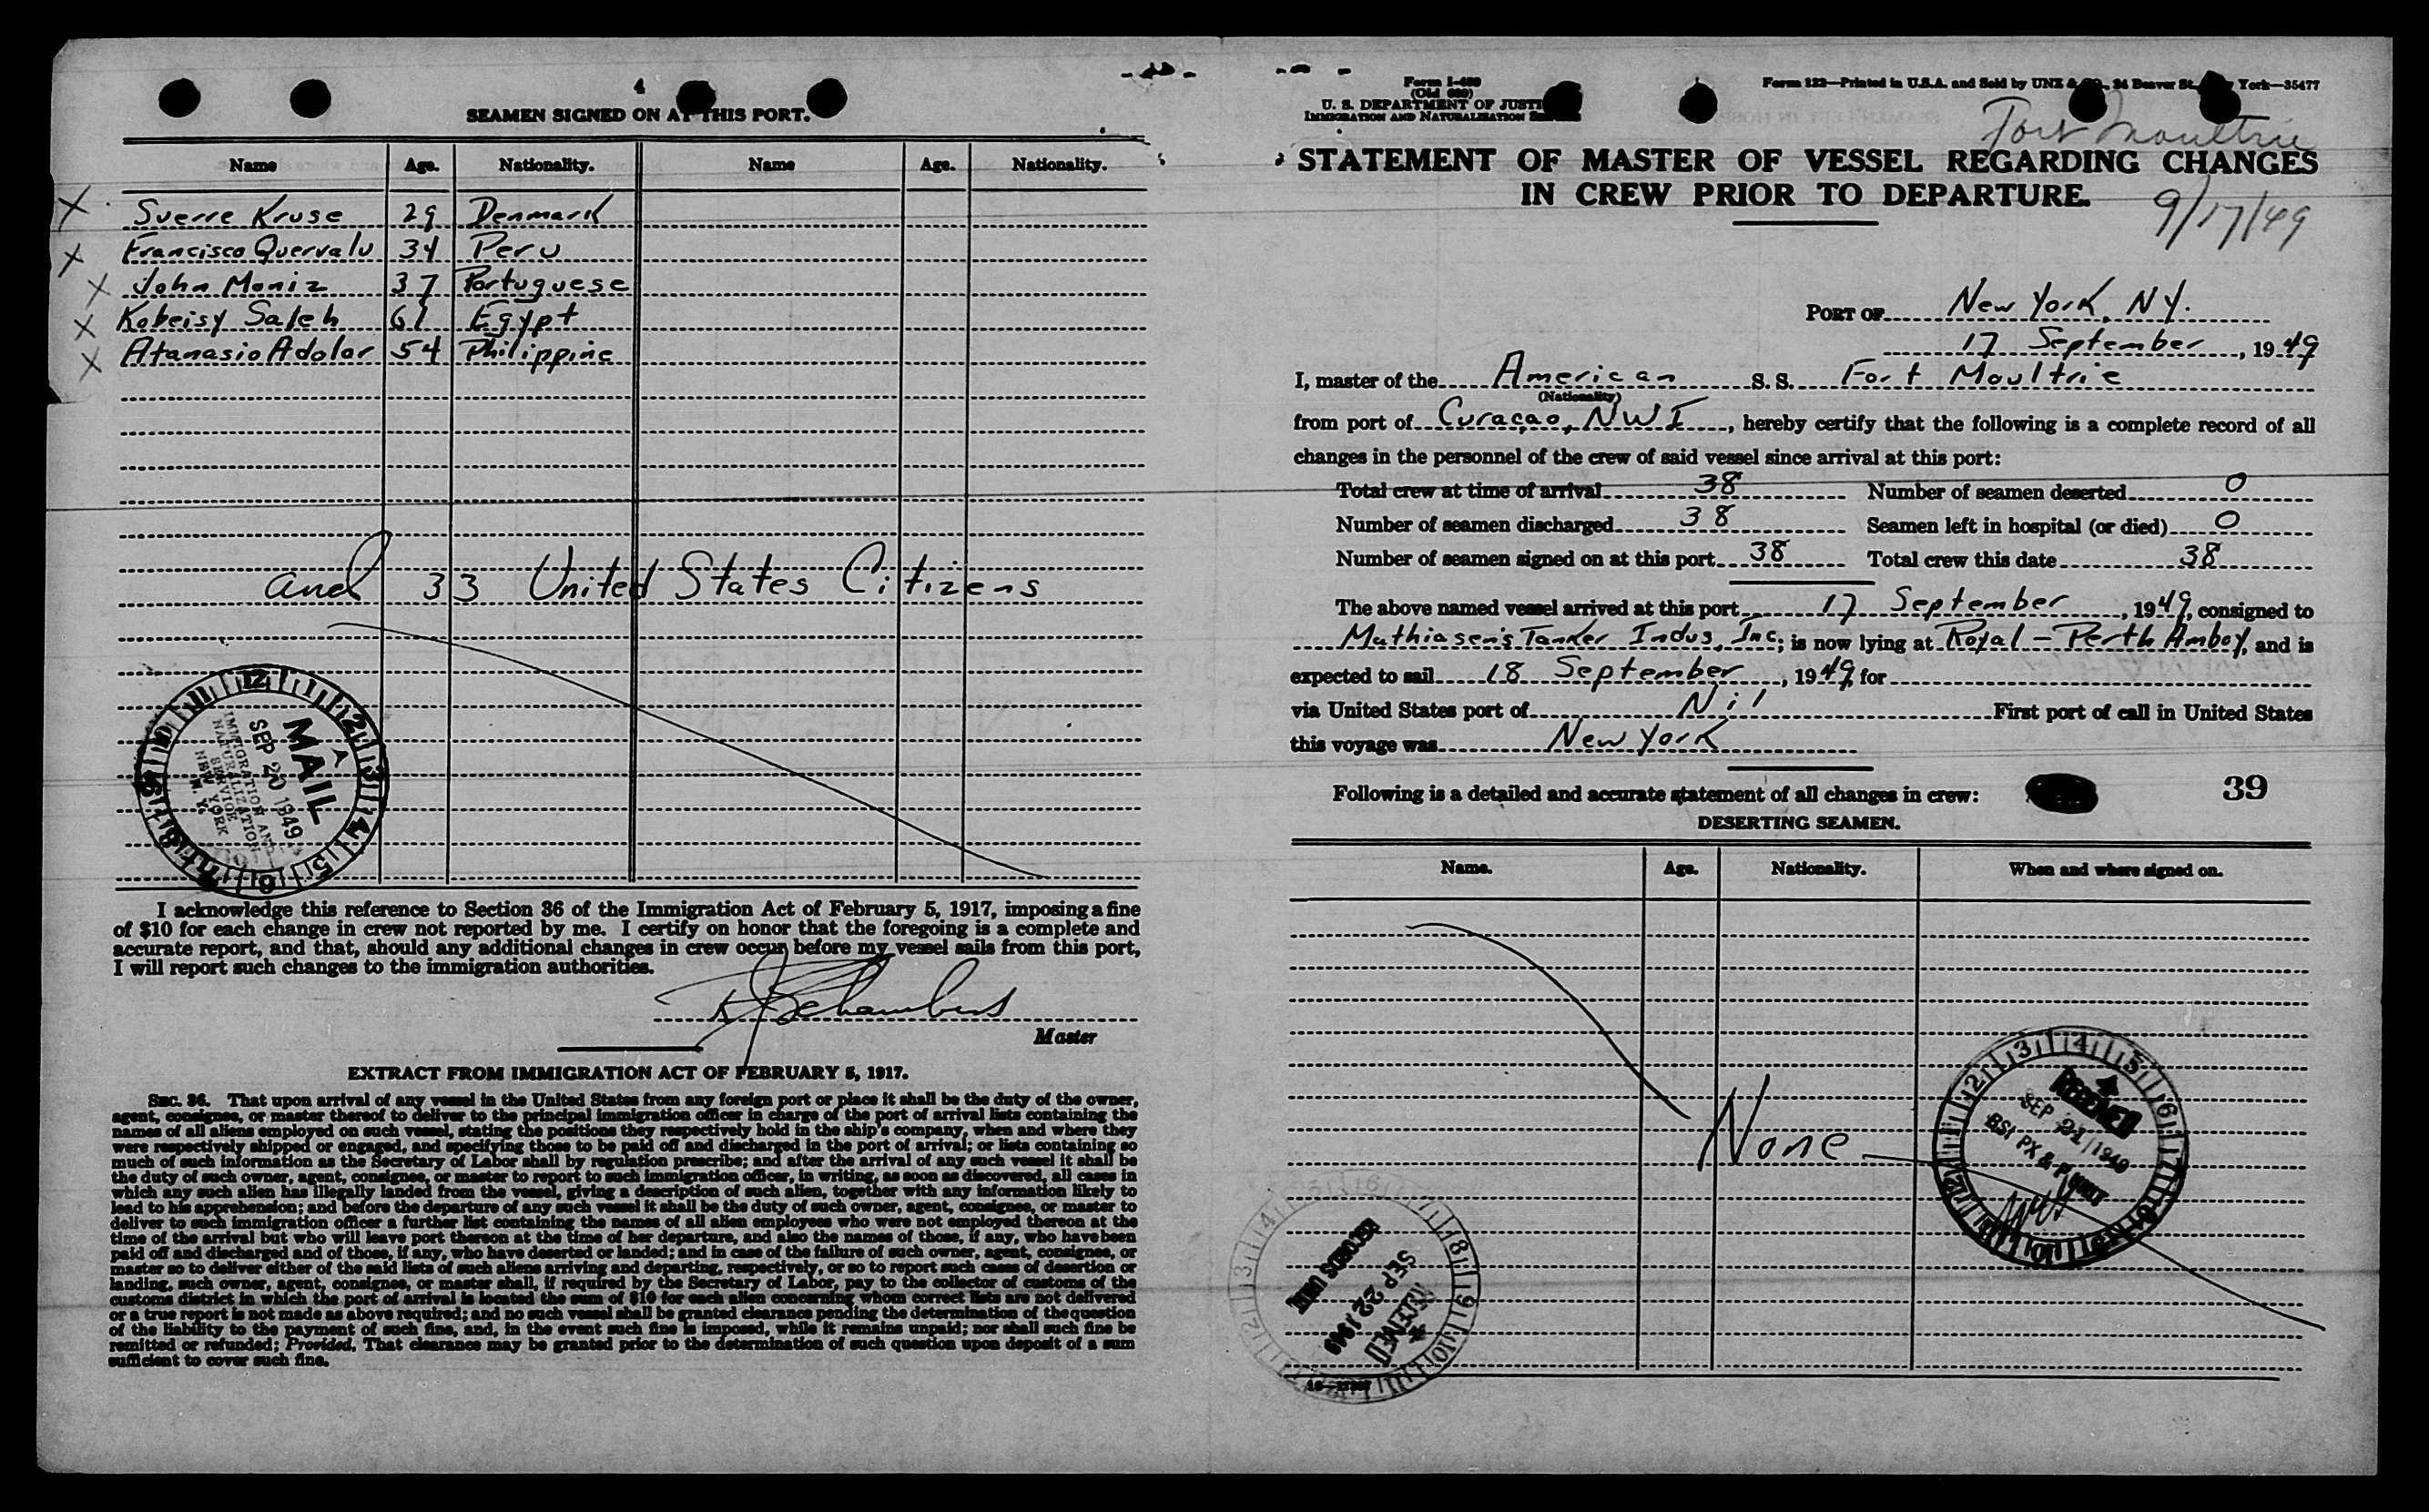 4
SEAMEN SIGNED ON AT THIS PORT.
Name Age. Nationality. Name Age. Nationality.
X Sverre Kruse 29 Denmark
X Francisco Quervalu 34 Peru
X John Moniz 37 Portuguese
X Kobeisy Saleh 61 Egypt
X Atanasio Adolar 54 Philippine
and 33 United States Citizens
MAIL
SEP 20 1949
IMMIGRATION AND
NATURALIZATION
SERVICE
NEW YORK
N. Y.
I acknowledge this reference to Section 36 of the Immigration Act of February 5, 1917, imposing a fine
of $10 for each change in crew not reported by me. I certify on honor that the foregoing is a complete and
accurate report, and that, should any additional changes in crew occur before my vessel sails from this port,
I will report such changes to the immigration authorities.
Chambers
Master
EXTRACT FROM IMMIGRATION ACT OF FEBRUARY 5, 1917.
SEC. 36. That upon arrival of any vessel in the United States from any foreign port or place it shall be the duty of the owner,
agent, consignee, or master thereof to deliver to the principal immigration officer in charge of the port of arrival lists containing the
names of all aliens employed on such vessel, stating the positions they respectively hold in the ship's company, when and where they
were respectively shipped or engaged, and specifying those to be paid off and discharged in the port of arrival; or lists containing so
much of such information as the Secretary of Labor shall by regulation prescribe; and after the arrival of any such vessel it shall be
the duty of such owner, agent, consignee, or master to report to such immigration officer, in writing, as soon as discovered, all cases in
which any such alien has illegally landed from the vessel, giving a description of such alien, together with any information likely to
lead to his apprehension; and before the departure of any such vessel it shall be the duty of such owner, agent, consignee, or master to
deliver to such immigration officer a further list containing the names of all alien employees who were not employed thereon at the
time of the arrival but who will leave port thereon at the time of her departure, and also the names of those, if any, who have been
paid off and discharged and of those, if any, who have deserted or landed; and in case of the failure of such owner, agent, consignee, or
master so to deliver either of the said lists of such aliens arriving and departing, respectively, or so to report such cases of desertion or
landing, such owner, agent, consignee, or master shall, if required by the Secretary of Labor, pay to the collector of customs of the
customs district in which the port of arrival is located the sum of $10 for each alien concerning whom correct lists are not delivered
or a true report is not made as above required; and no such vessel shall be granted clearance pending the determination of the question
of the liability to the payment of such fine, and, in the event such fine is imposed, while it remains unpaid; nor shall such fine be
remitted or refunded; Provided, That clearance may be granted prior to the determination of such question upon deposit of a sum
sufficient to cover such fine.
Form I-489
(Old 689)
U. S. DEPARTMENT OF JUSTI
IMMIGRATION AND NATURALIZATION
Form 122—Printed in U.S.A. and Sold by UNZ & CO., 24 Beaver St., York—35477
Fort Moultrie
STATEMENT OF MASTER OF VESSEL REGARDING CHANGES
IN CREW PRIOR TO DEPARTURE.
9/17/49
PORT OF New York, NY.
17 September, 1949
I, master of the American S. S. Fort Moultrie
(Nationality)
from port of Curaçao, NWI, hereby certify that the following is a complete record of all
changes in the personnel of the crew of said vessel since arrival at this port:
Total crew at time of arrival 38 Number of seamen deserted 0
Number of seamen discharged 38 Seamen left in hospital (or died) 0
Number of seamen signed on at this port 38 Total crew this date 38
The above named vessel arrived at this port 17 September, 1949, consigned to
Mathiasen's Tanker Indus, Inc; is now lying at Royal - Perth Amboy, and is
expected to sail 18 September, 1949, for
via United States port of Nil First port of call in United States
this voyage was New York
Following is a detailed and accurate statement of all changes in crew: 39
DESERTING SEAMEN.
Name. Age. Nationality. When and where signed on.
None
RECEIVED
SEP 21 1949
BSI PX & P UNIT
RECEIVED
SEP 22 1949